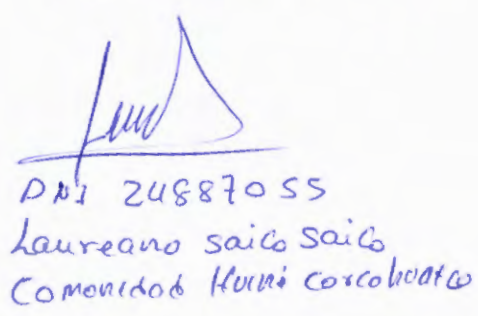 DNI 24887055
Laureano saico saico
Comonidad Huini Corcohuatco